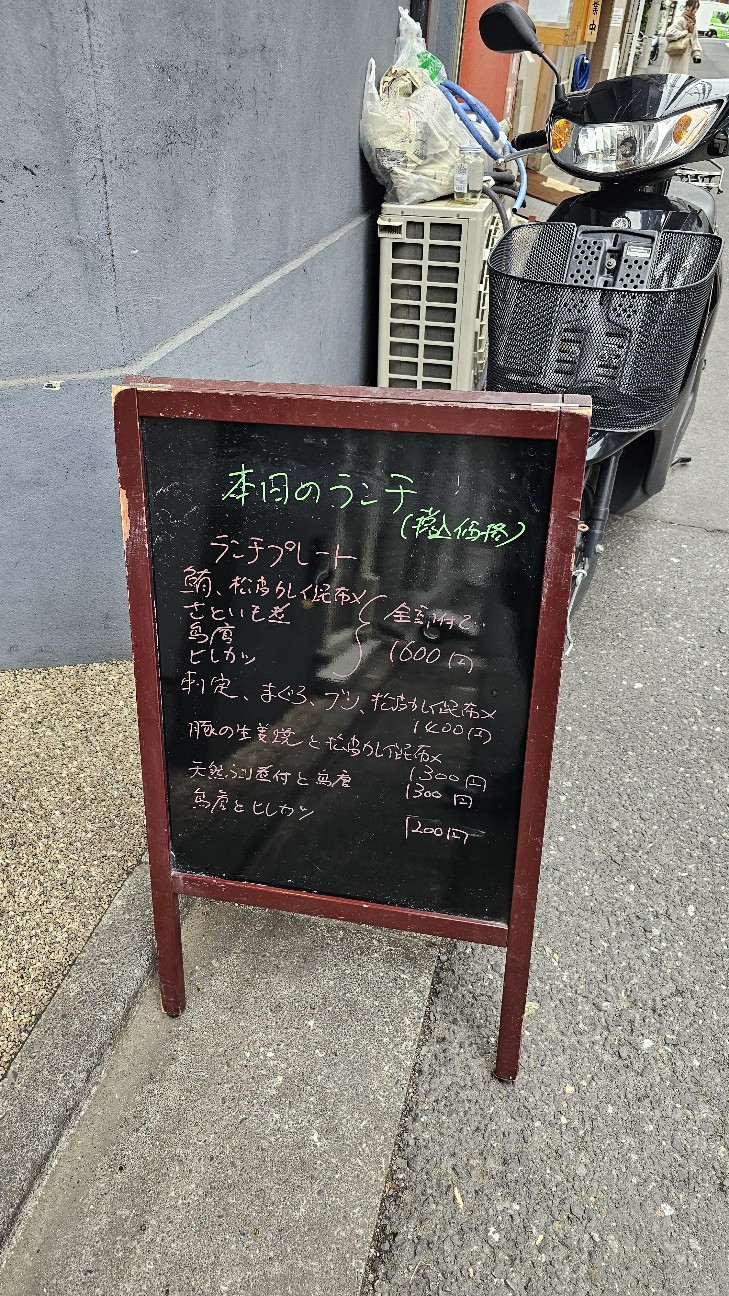 本日のランチ
(税込価格)
ランチプレート
鮪、松皮カレイ昆布〆
さといも煮
鳥唐
ヒレカツ
全部付で
1600円
刺定、まぐろ、ブリ、松皮カレイ昆布〆
1400円
豚の生姜焼と松皮カレイ昆布〆
1300円
天然ぶり煮付と鳥唐
1300円
鳥唐とヒレカツ
1200円